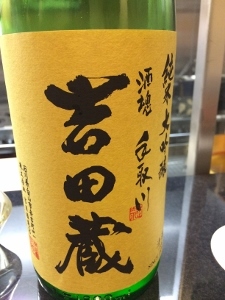 純米大吟醸
酒魂 手取川
吉田蔵